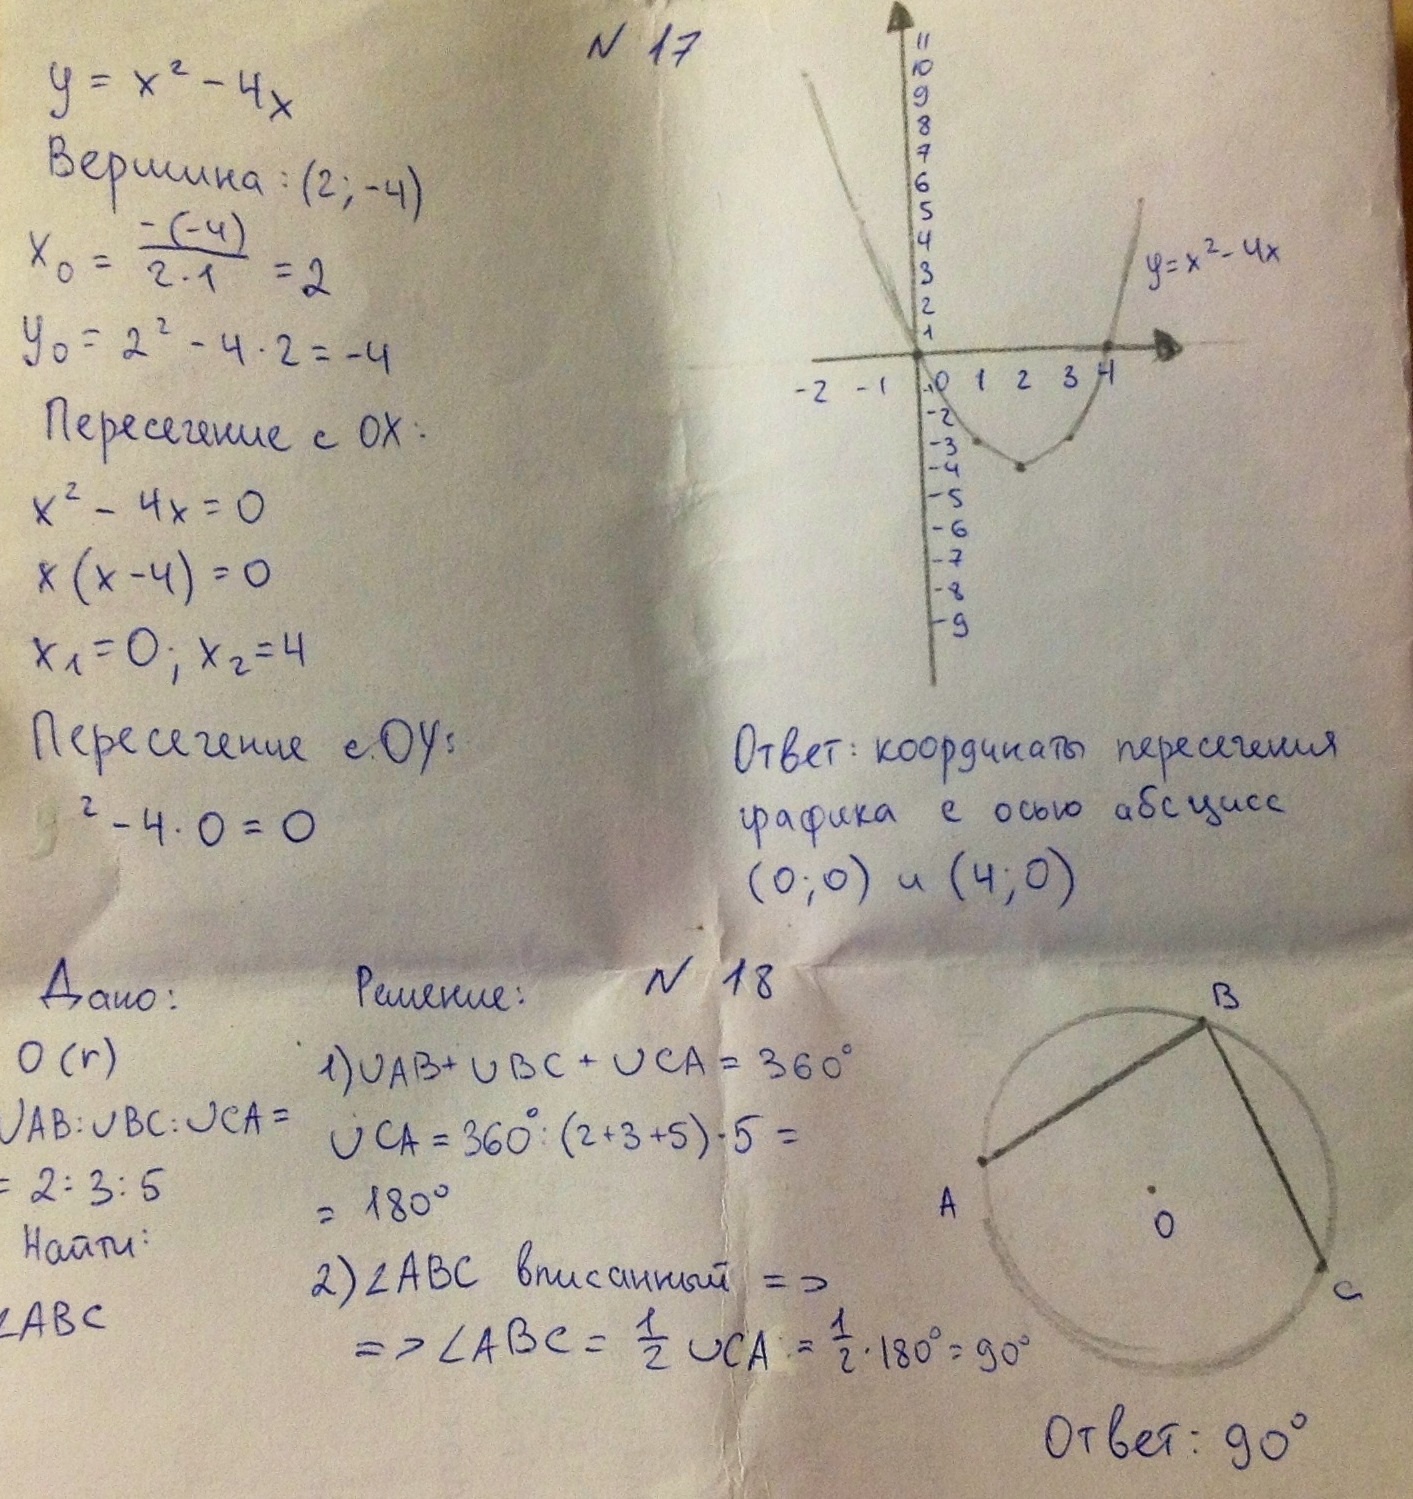 N 17
y = x² - 4x
Вершина: (2; -4)
x₀ = -(-4)/2·1 = 2
y₀ = 2² - 4·2 = -4
Пересечение с OX:
x² - 4x = 0
x(x-4) = 0
x₁=0; x₂=4
Пересечение с OY:
² - 4·0 = 0
11
10
9
8
7
6
5
4
3
2
1
y=x²-4x
-2 -1 0 1 2 3 4
-1
-2
-3
-4
-5
-6
-7
-8
-9
Ответ: координаты пересечения
графика с осью абсцисс
(0;0) и (4;0)
N 18
Дано:
O(r)
∪AB:∪BC:∪CA=
= 2:3:5
Найти:
∠ABC
Решение:
1)∪AB+∪BC+∪CA=360°
∪CA=360°:(2+3+5)·5=
= 180°
2)∠ABC вписанный =>
=>∠ABC = 1/2 ∪CA = 1/2·180°=90°
B
A
O
C
Ответ: 90°